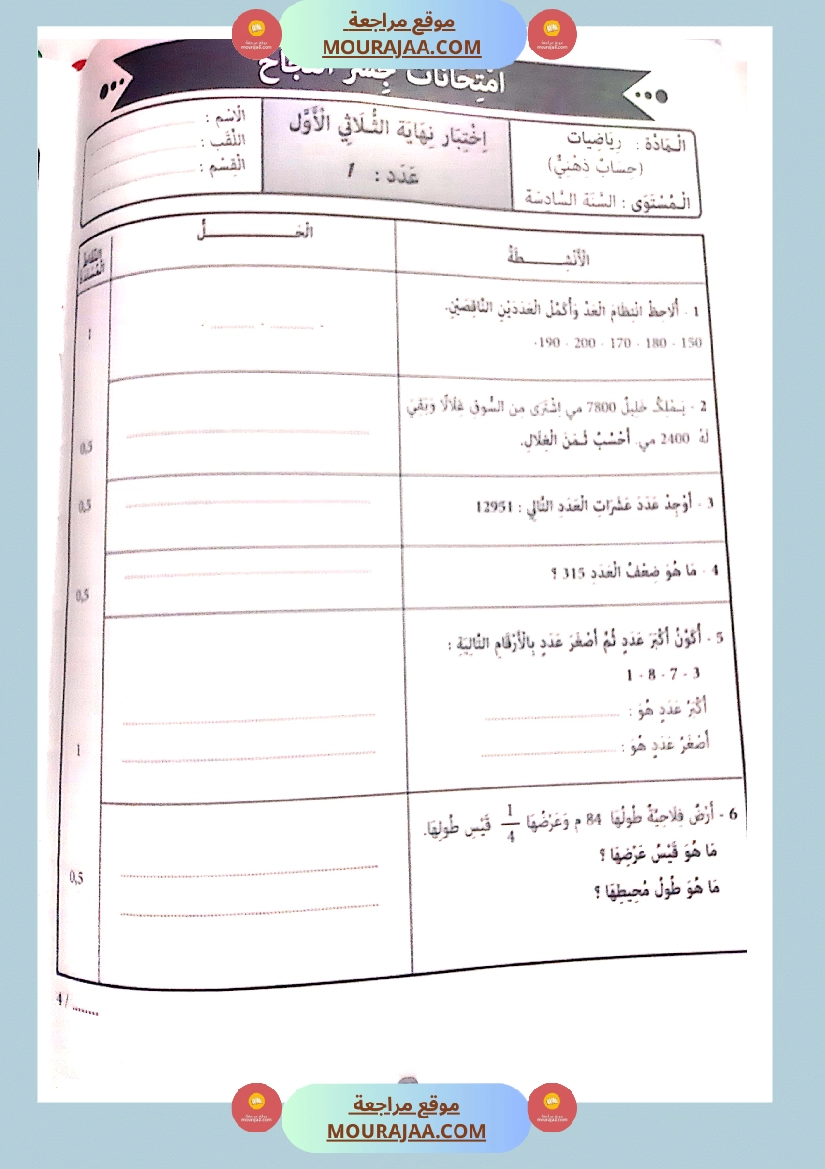 موقع مراجعة
MOURAJAA.COM
امتحانات جسر النجاح
الْمَادَّة : رِيَاضِيات
(حِسَابٌ ذِهْنِيٌّ)
الْمُسْتَوَى : السَّنَة السَّادِسَة
اِخْتِبَار نِهَايَة الثُّلَاثِي الْأَوَّل
عَدَد : 1
الْاِسْم :
اللَّقَب :
الْقِسْم :
الْأَنْشِــــطَةُ
الْحَــــــــلُّ
1 - أُلَاحِظُ انْتِظَامَ الْعَدِّ وَأُكْمِلُ الْعَدَدَيْنِ النَّاقِصَيْنِ.
150 - 180 - 170 - 200 - 190-
- ............ - ............ -
1
2 - يَـمْلِكُ خَلِيلُ 7800 مي اِشْتَرَى مِن السُّوقِ غِلَالًا وَبَقِيَ
لَهُ 2400 مي. أَحْسُبُ ثَـمَنَ الْغِلَالِ.
0,5
3 - أُوْجِدُ عَدَدَ عَشَرَاتِ الْعَدَدِ التَّالِي : 12951
0,5
4 - مَا هُوَ ضِعْفُ الْعَدَدِ 315 ؟
0,5
5 - أُكَوِّنُ أَكْبَرَ عَدَدٍ ثُمَّ أَصْغَرَ عَدَدٍ بِالْأَرْقَامِ التَّالِيَةِ :
1 - 8 - 7 - 3
أَكْبَرُ عَدَدٍ هُوَ : ............
أَصْغَرُ عَدَدٍ هُوَ : ............
1
6 - أَرْضٌ فِلَاحِيَّةٌ طُولُهَا 84 م وَعَرْضُهَا 1/4 قَيْسِ طُولِهَا.
مَا هُوَ قَيْسُ عَرْضِهَا ؟
مَا هُوَ طُولُ مُحِيطِهَا ؟
0,5
4 / ........
موقع مراجعة
MOURAJAA.COM